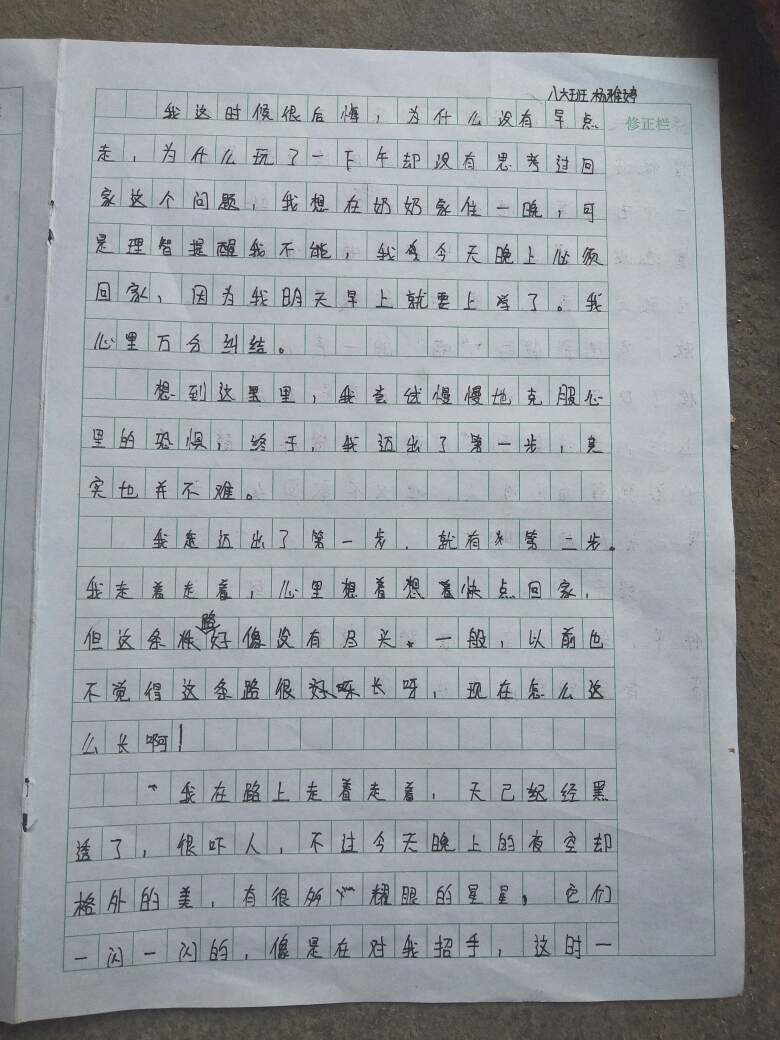 八六班 杨雅婷
修正栏
我这时候很后悔，为什么没有早点
走，为什么玩了一下午却没有思考过回
家这个问题，我想在奶奶家住一晚，可
是理智提醒我不能，我今天晚上必须
回家，因为我明天早上就要上学了。我
心里万分纠结。
想到这里，我尝试慢慢地克服心
里的恐惧，终于，我迈出了第一步，其
实也并不难。
我迈出了第一步，就有第二步。
我走着走着，心里想着想着快点回家，
但这条路好像没有尽头。一般，以前也
不觉得这条路很长呀，现在怎么这
么长啊！
我在路上走着走着，天已经黑
透了，很吓人，不过今天晚上的夜空却
格外的美，有很多耀眼的星星，它们
一闪一闪的，像是在对我招手，这时一